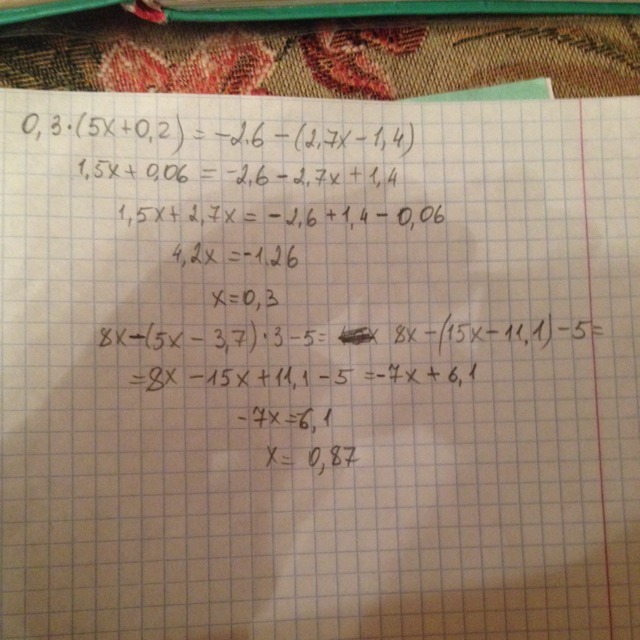 0,3·(5x+0,2)=-2,6-(2,7x-1,4)
1,5x+0,06=-2,6-2,7x+1,4
1,5x+2,7x=-2,6+1,4-0,06
4,2x=-1,26
x=0,3
8x-(5x-3,7)·3-5= 8x-(15x-11,1)-5=
=8x-15x+11,1-5=-7x+6,1
-7x=6,1
x=0,87